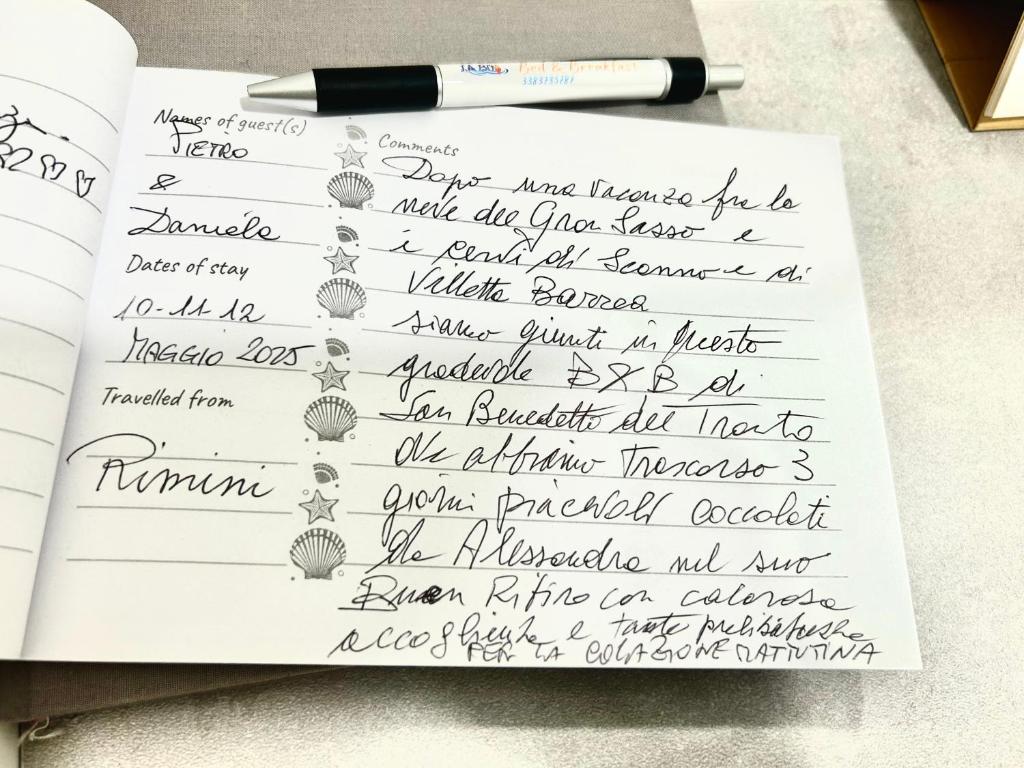 Bed & Breakfast
3383735787
Names of guest(s)
PIETRO
&
Daniela
Dates of stay
10-11-12
MAGGIO 2025
Travelled from
Rimini
Comments
Dopo una vacanza fra la
neve del Gran Sasso e
i cervi di Scanno e di
Villetta Barrea
siamo giunti in questo
gradevole B & B di
San Benedetto del Tronto
ove abbiamo trascorso 3
giorni piacevoli coccolati
da Alessandra nel suo
Buen Ritiro con calorosa
accoglienza e tante prelibatezze
PER LA COLAZIONE MATTUTINA